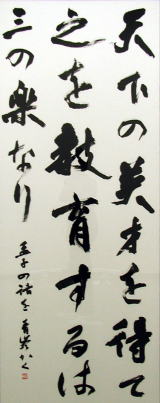 天下の美才を得て
之を教育するは
三の楽なり
孟子の語を